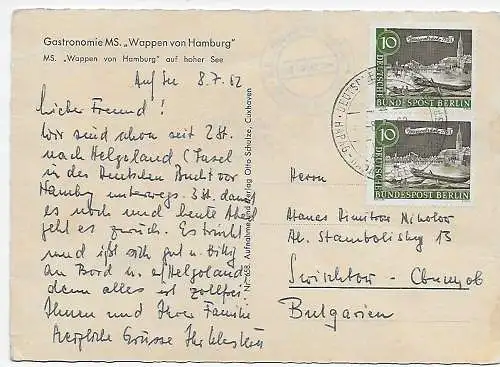 Gastronomie MS. „Wappen von Hamburg"
MS. „Wappen von Hamburg" auf hoher See
Auf See 8.7.62
Lieber Freund!
Wir sind schon seit 2 St.
nach Helgoland (Insel
in der Deutschen Bucht vor
Hamburg unterwegs. 3 St. dauert
es noch und heute Abend
geht es zurück. Es trinkt
und ißt sich gut u. billig
an Bord u. a/Helgoland,
denn alles ist zollfrei.
Ihnen und Ihrer Familie
Herzliche Grüsse Ihr
Nr. 768 Aufnahme und Verlag Otto Schulze, Cuxhaven
10
DEUTSCHE
BUNDESPOST BERLIN
10
DEUTSCHE
BUNDESPOST BERLIN
Herrn
Atanas Dimitrov Nikolov
Al. Stambolisky 13
Svischtov - Свищов
Bulgarien